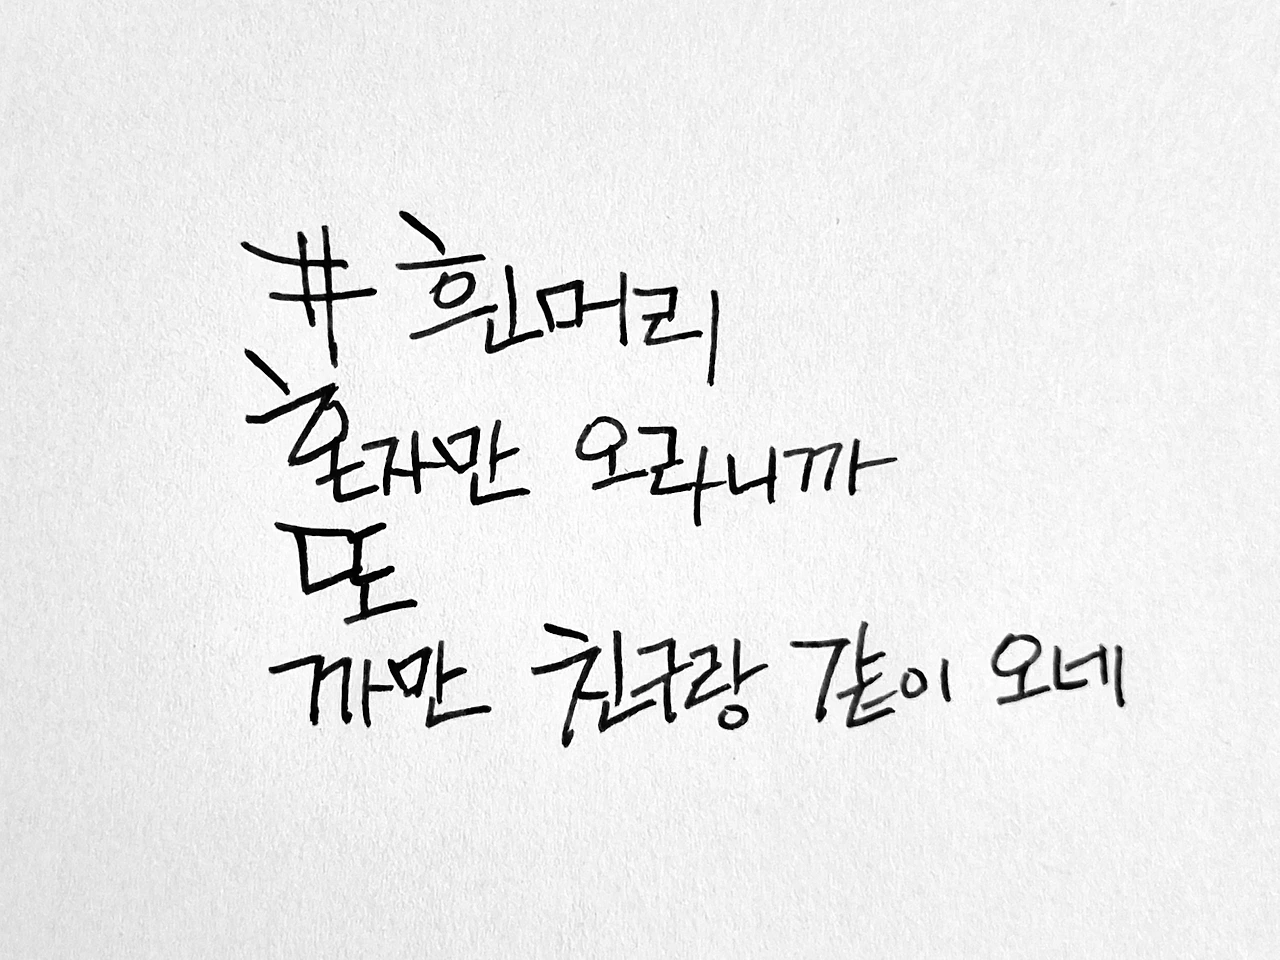 # 흰머리
혼자만 오라니까
또
까만 친구랑 같이 오네